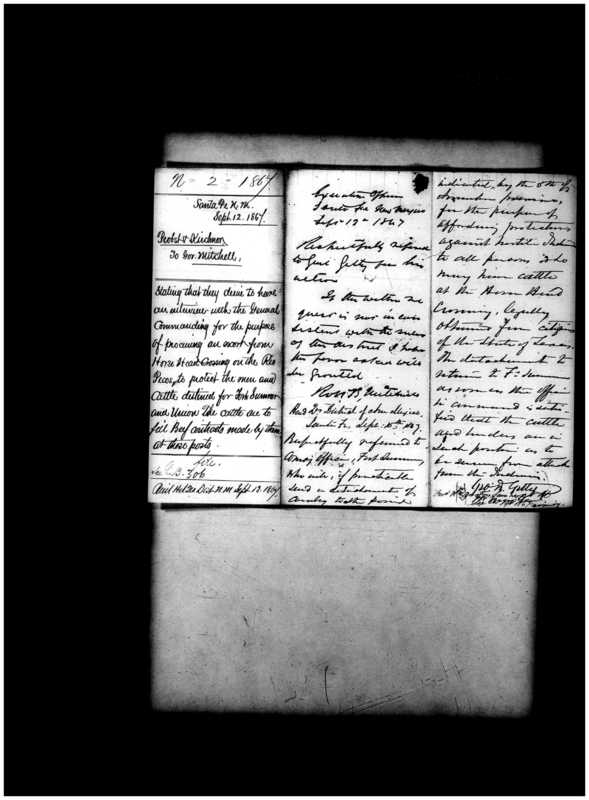 N - 2 - 1867.
Santa Fe N.M.
Sept. 12. 1867.
Probst & Kirchner
To Gov. Mitchell,
Stating that they desire to have
an interview with the General
Commanding for the purpose
of procuring an escort from
Horse Head Crossing on the Rio
Pecos, to protect the men and
Cattle destined for Fort Sumner
and Union The cattle are to
fill Beef contracts made by them
at those posts.
file.
306
Recd Hd. Qrs Dist. N.M. Sept. 13. 1867
Executive Office
Santa Fe New Mexico
Sept 12th 1867
Respectfully referred
to Genl Getty for his
action
If the within re
quest is not in con
sistent with the rules
of the district I hope
the favor asked will
be granted
Robt B. Mitchell
Head Qrs District of New Mexico.
Santa Fe Sept. 15th, 1867.
Respectfully referred to
Comdg Officer, Fort Sumner,
who will, if practicable
send a detachment of
Cavalry to the point
indicated, by the 5th of
for the purpose of
affording protection
against hostile Indians
to all persons who
may have cattle
at the Horse Head
Crossing, legally
obtained from citizens
of the State of Texas.
The detachment to
return to Ft. Sumner
as soon as the officer
in command is satis-
fied that the cattle
and herders are in
such position as to
be secure from attack
from the Indians.
Geo. W. Getty